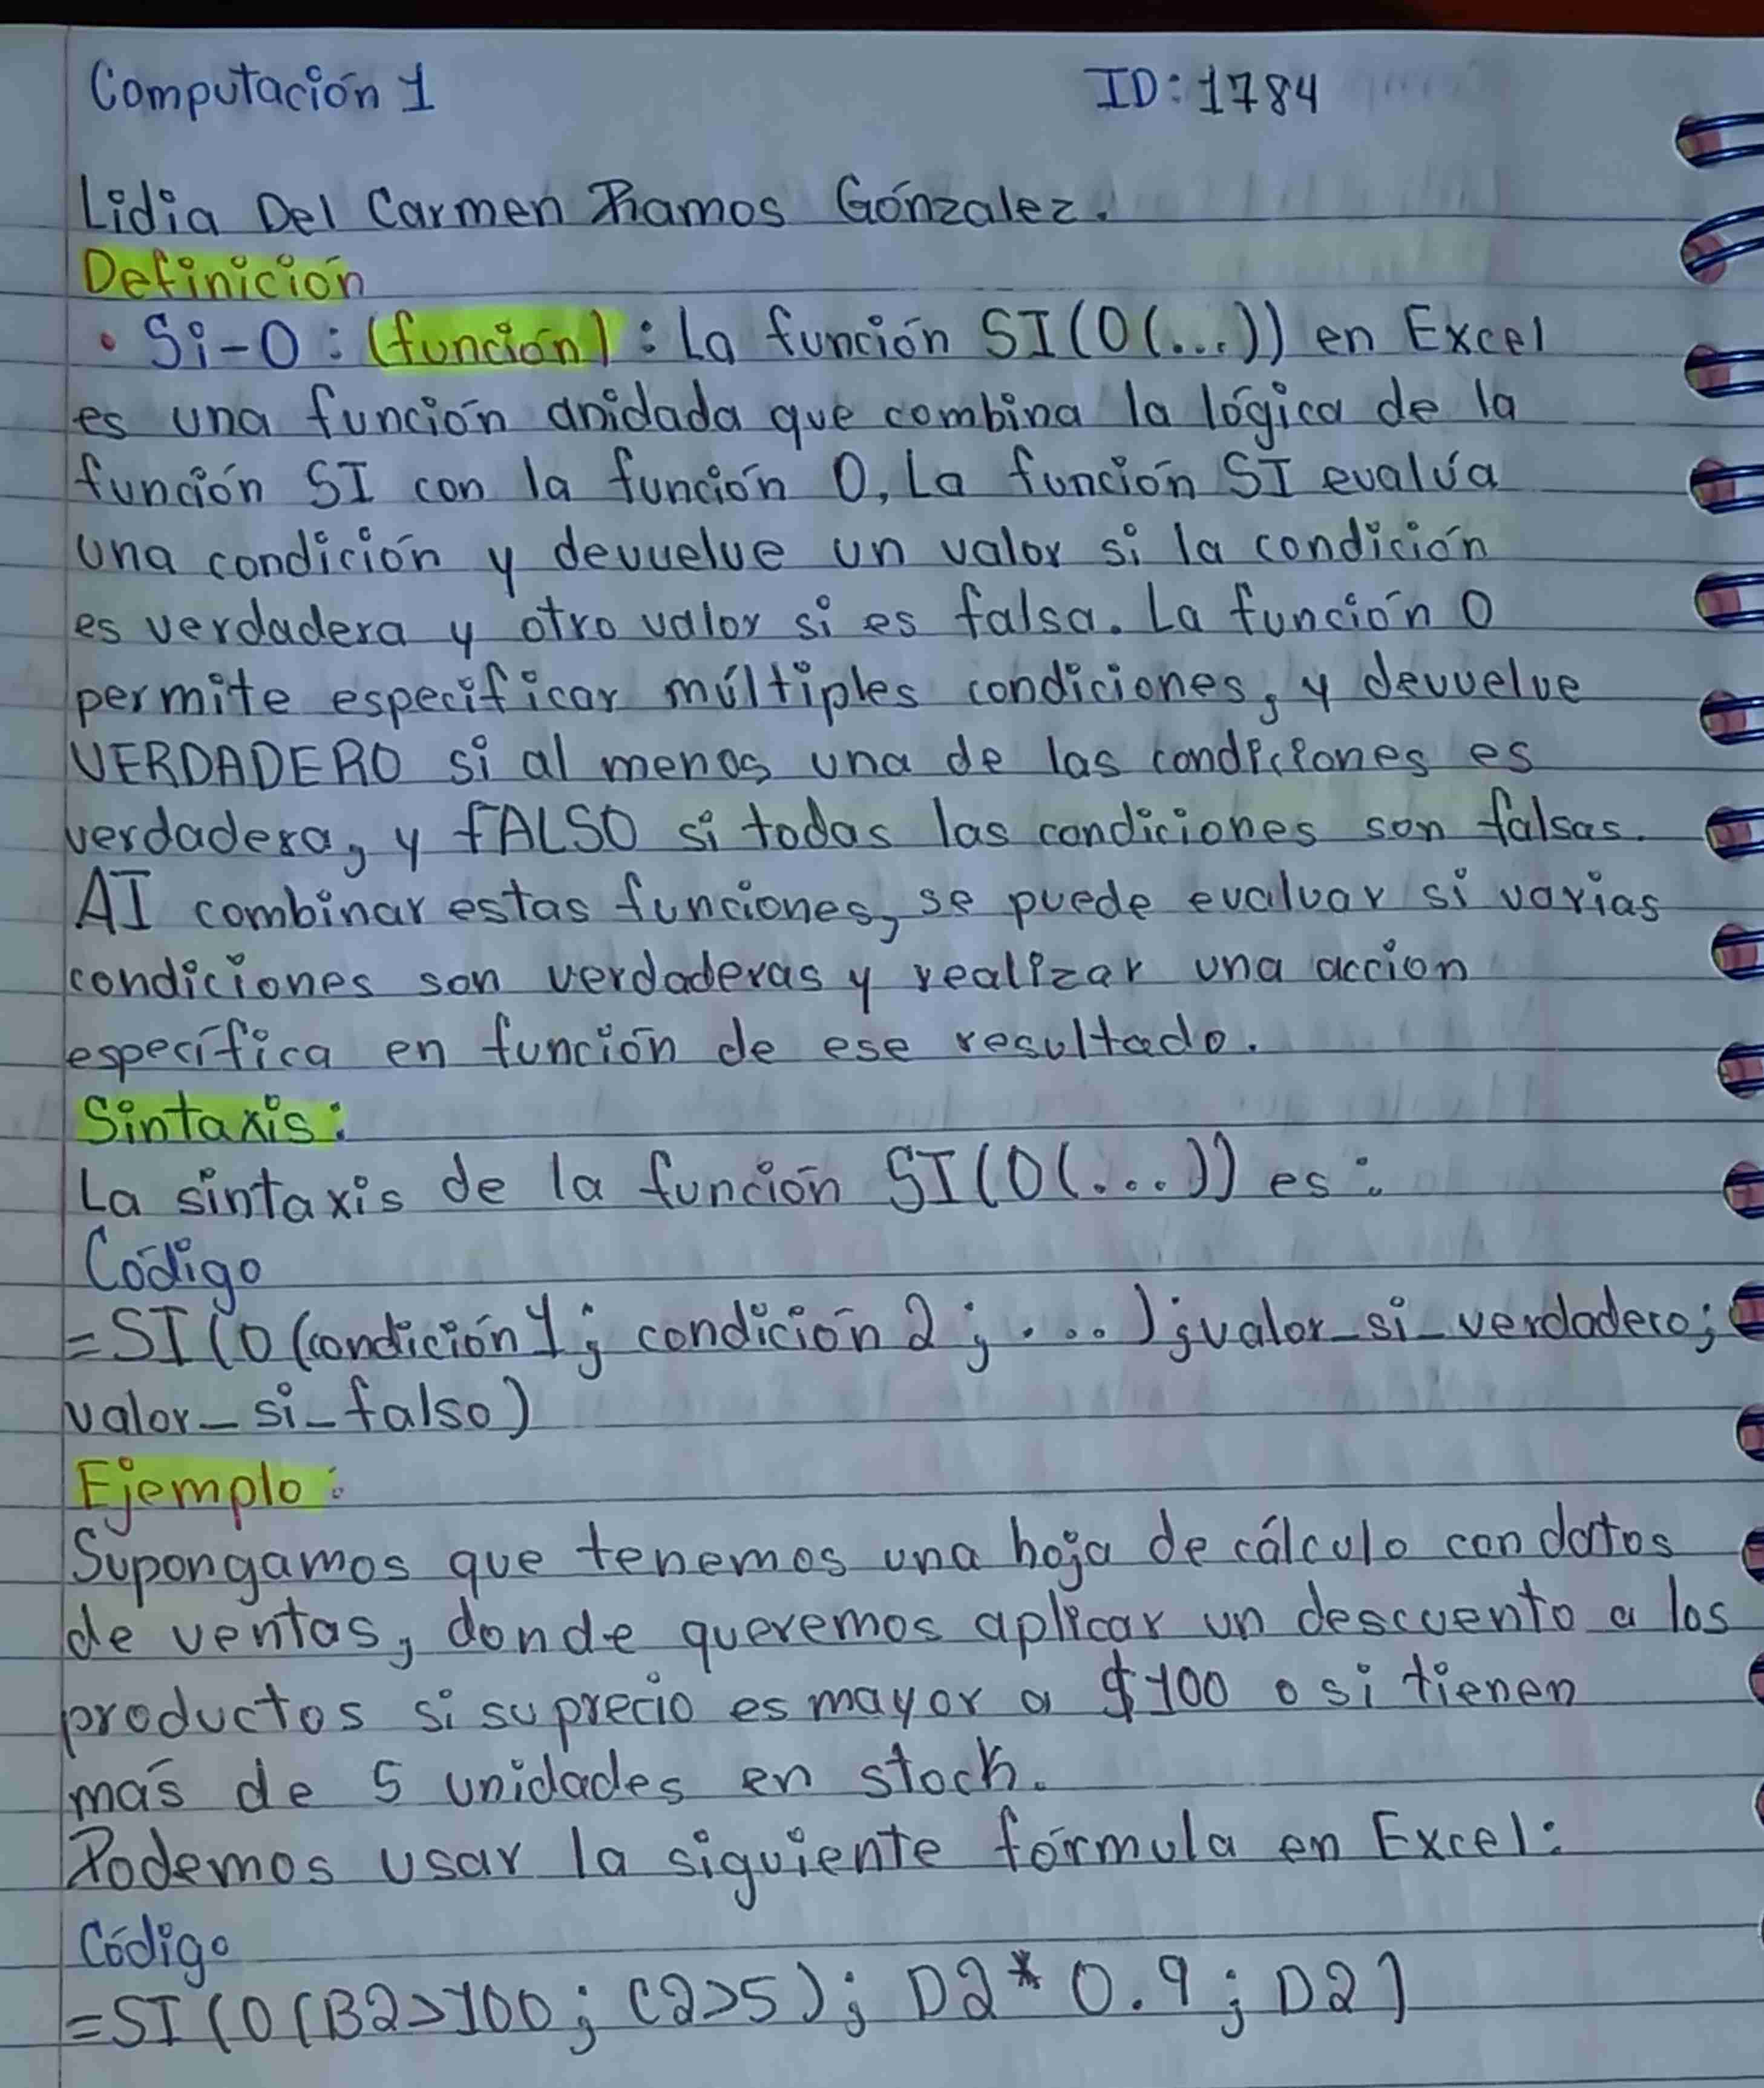 Computación 1 ID: 1784
Lidia Del Carmen Ramos Gónzalez.
Definición
• Si-O: (función): La función SI(O(...)) en Excel
es una función anidada que combina la lógica de la
función SI con la función O, La función SI evalúa
una condición y devuelve un valor si la condición
es verdadera y otro valor si es falsa. La función O
permite especificar múltiples condiciones, y devuelve
VERDADERO si al menos una de las condiciones es
verdadera, y fALSO si todas las condiciones son falsas.
AI combinar estas funciones, se puede evaluar si varias
condiciones son verdaderas y realizar una acción
específica en función de ese resultado.
Sintaxis:
La sintaxis de la función SI(O(...)) es:
Código
=SI(O(condición1; condición2; ...);valor_si_verdadero;
valor_si_falso)
Ejemplo:
Supongamos que tenemos una hoja de cálculo con datos
de ventas, donde queremos aplicar un descuento a los
productos si su precio es mayor a $100 o si tienen
más de 5 unidades en stock.
Podemos usar la siguiente fórmula en Excel:
Código
=SI(O(B2>100; C2>5); D2*0.9; D2)